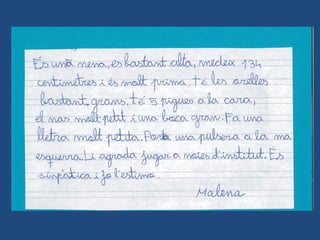 És una nena, es bastant alta, medex 134
centimetres i és molt prima. té les orelles
bastant grans, té 5 pigues a la cara,
el nas molt petit i una boca gran. Fa una
lletra molt petita. Porta una pulsera a la ma
esquerra. Li agrada jugar a noies d'institut. És
sinpàtica i jo l'estimo.
Malena